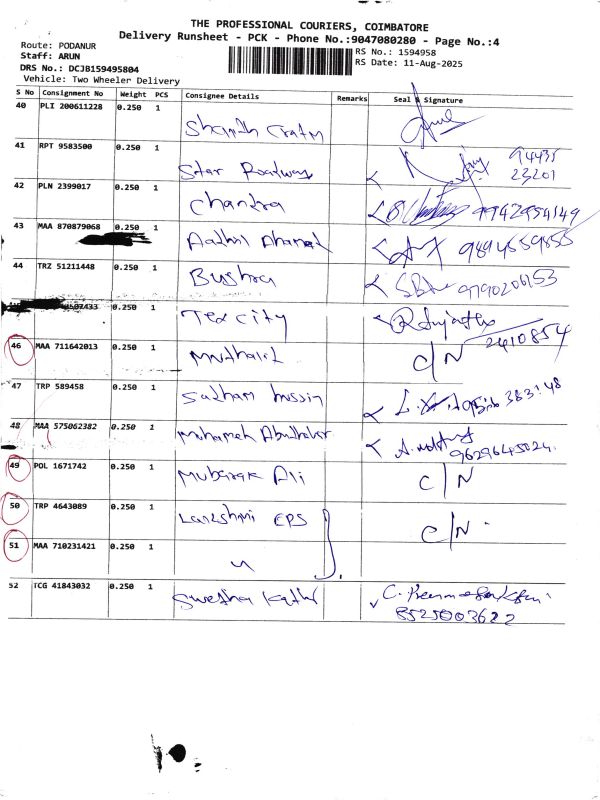 THE PROFESSIONAL COURIERS, COIMBATORE
Delivery Runsheet - PCK - Phone No.:9047080280 - Page No.:4
Route: PODANUR
RS No.: 1594958
Staff: ARUN
RS Date: 11-Aug-2025
DRS No.: DCJB159495804
Vehicle: Two Wheeler Delivery
S No Consignment No Weight PCS Consignee Details Remarks Seal & Signature
40 PLI 200611228 0.250 1
41 RPT 9583500 0.250 1 Star Roadways 94435 23201
42 PLN 2399017 0.250 1 Chandra 9942954149
43 MAA 870879068 0.250 1 Aathil Ahamed
44 TRZ 51211448 0.250 1 Bushra 9790206153
0.250 1 Tex city
46 MAA 711642013 0.250 1 C/N 2410854
47 TRP 589458 0.250 1 Sadham hussin
48 MAA 575062382 0.250 1 9629645024
49 POL 1671742 0.250 1 Mubarak Ali C/N
50 TRP 4643089 0.250 1 Lakshmi EPS C/N
51 MAA 710231421 0.250 1 "
52 TCG 41843032 0.250 1 Swetha 8525003622